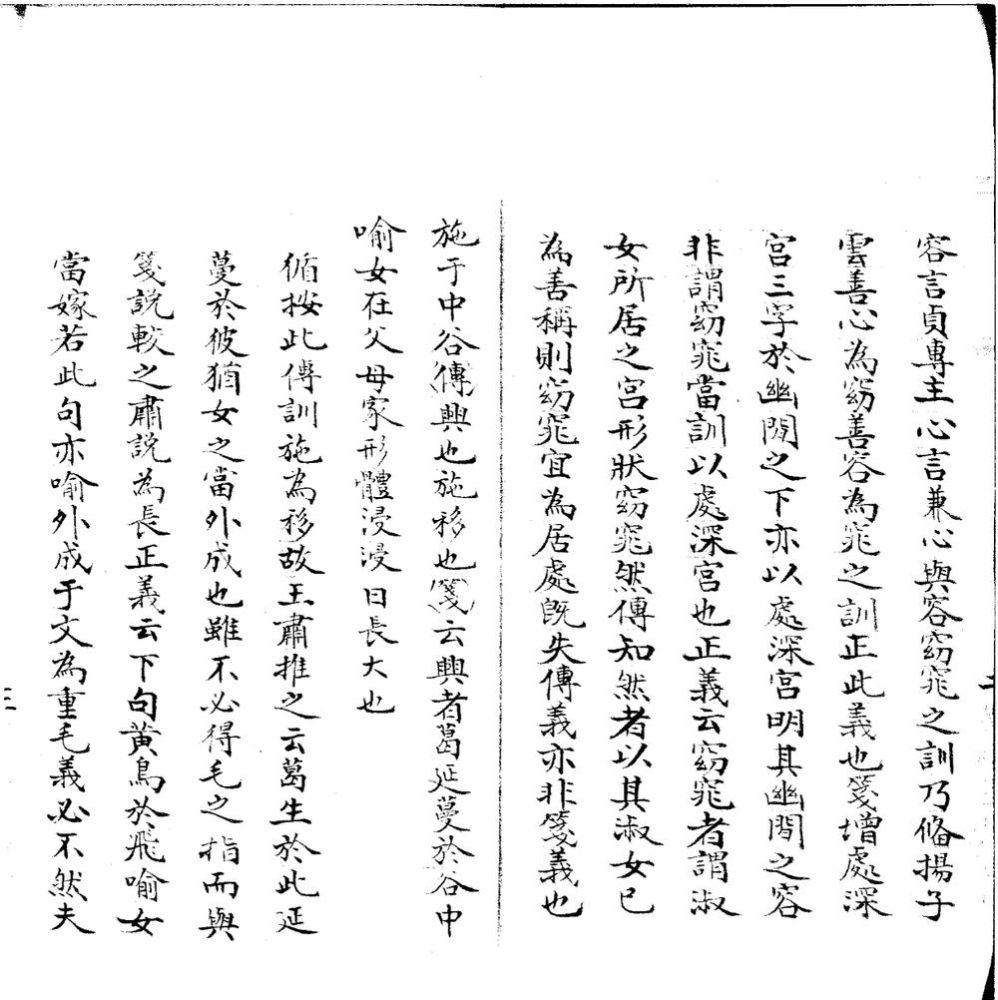 容言貞專主心言兼心與容窈窕之訓乃俻揚子
雲善心為窈善容為窕之訓正此義也箋增處深
宮三字於幽閒之下亦以處深宮明其幽閒之容
非謂窈窕當訓以處深宮也正義云窈窕者謂淑
女所居之宮形狀窈窕然傳知然者以其淑女已
為善稱則窈窕宜為居處既失傳義亦非箋義也
施于中谷傳興也施移也箋云興者葛延蔓於谷中
喻女在父母家形體浸浸日長大也
循按此傳訓施為移故王肅推之云葛生於此延
蔓於彼猶女之當外成也雖不必得毛之指而與
箋說較之肅說為長正義云下句黃鳥於飛喻女
當嫁若此句亦喻外成于文為重毛義必不然夫
三